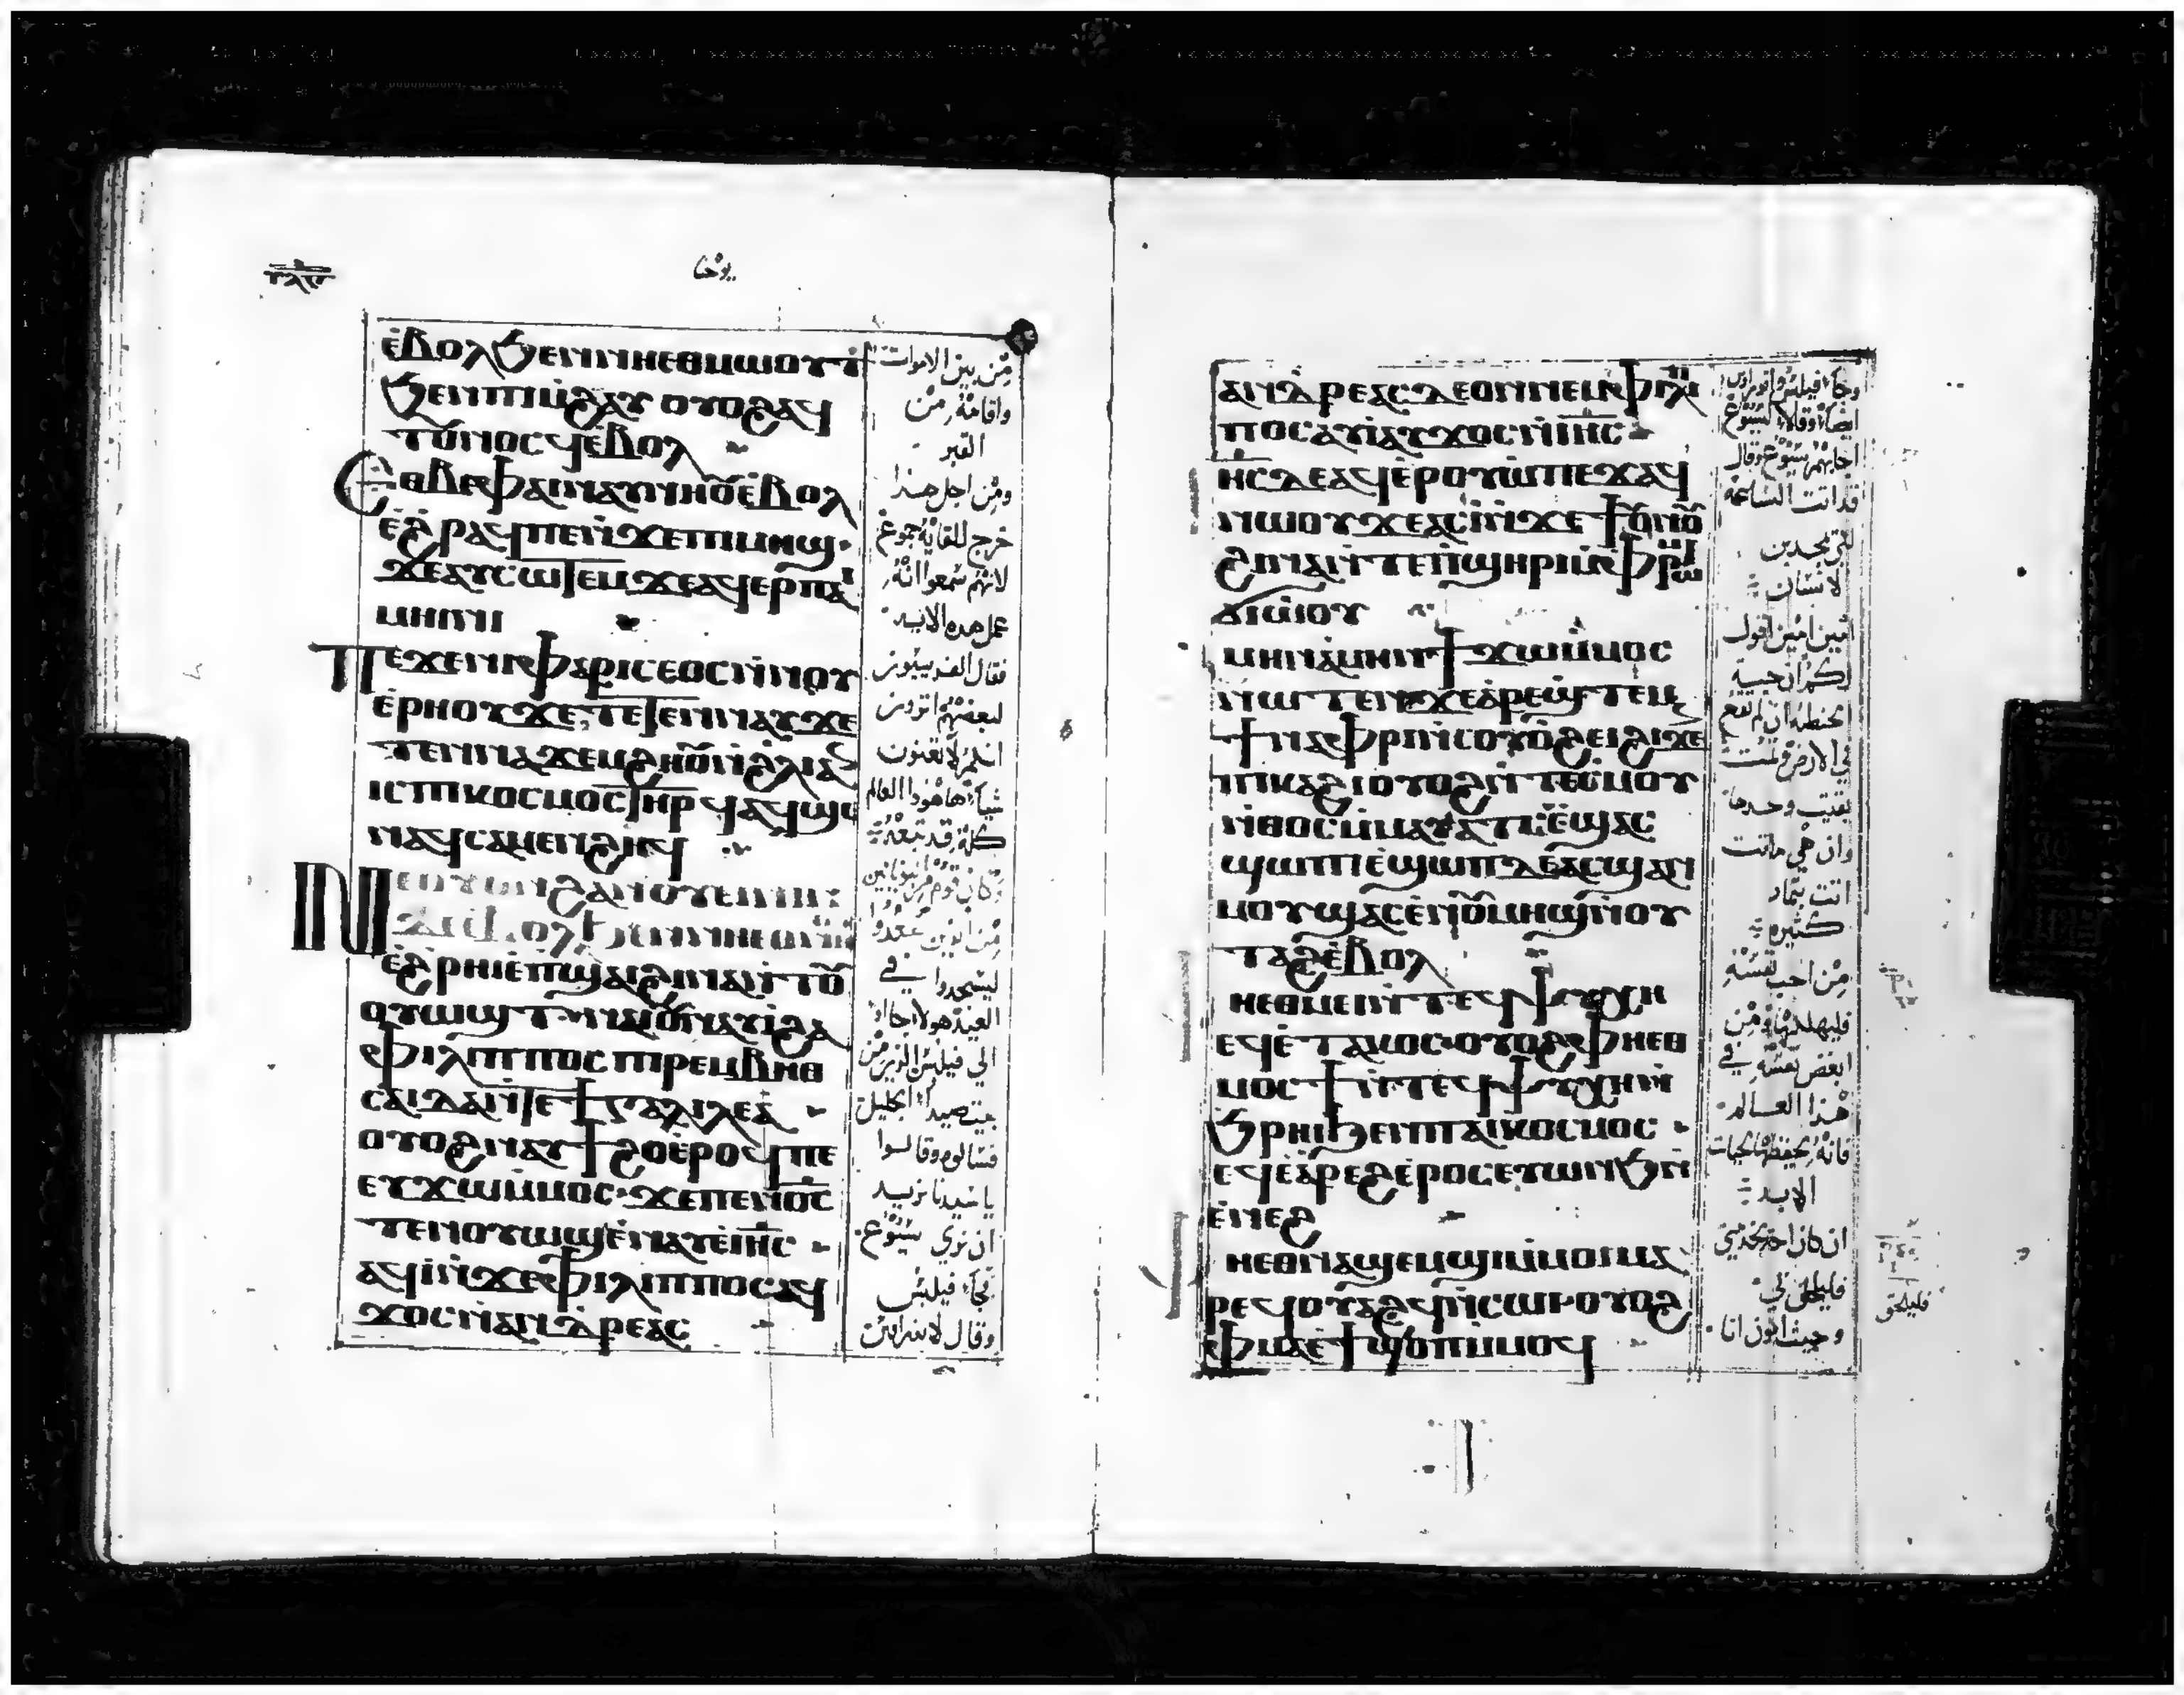 يوحنا
ⲉ̀ⲃⲟⲗ ϧⲉⲛⲛⲏⲉⲑⲙⲱⲟⲩⲧ
ϧⲉⲛⲡⲓⲙ̀ϩⲁⲩ ⲟⲩⲟϩⲁϥ
ⲧⲟⲩⲛⲟⲥϥ ⲉ̀ⲃⲟⲗ
ⲉⲑⲃⲉⲫⲁⲓⲛⲁⲩⲛⲏⲟⲩ ⲉ̀ⲃⲟⲗ
ⲉ̀ϩⲣⲁϥⲡⲉⲛ̀ϫⲉⲡⲓⲙⲏϣ
ϫⲉⲁⲩⲥⲱⲧⲉⲙ ϫⲉⲁϥⲉⲣⲡⲁⲓ
ⲙⲏⲓⲛⲓ
ⲡⲉϫⲉⲛⲓⲫⲁⲣⲓⲥⲉⲟⲥ ⲛ̀ⲛⲟⲩ
ⲉ̀ⲣⲏⲟⲩ ϫⲉ ⲧⲉⲧⲉⲛⲛⲁⲩ ϫⲉ
ⲧⲉⲛⲛⲁϫⲉⲙϩⲏⲟⲩ ⲛ̀ϩⲗⲓⲁⲛ
ⲓⲥ ⲡⲓⲕⲟⲥⲙⲟⲥ ⲧⲏⲣϥ ⲁϥϣⲉ
ⲛⲁϥ ⲥⲁⲙⲉⲛϩⲏϥ
ⲛⲉⲟⲩⲟⲛϩⲁⲛⲟⲩⲉⲓⲛⲓⲛ
ⲉ̀ϩⲣⲏⲓ ⲉ̀ⲡϣⲁⲓ ϩⲓⲛⲁⲛ̀ⲧⲟⲩ
ⲟⲩⲱϣⲧ ⲛⲁⲓⲟⲩⲛⲁⲩⲓ̀ϩⲁ
ⲫⲓⲗⲓⲡⲡⲟⲥ ⲡⲓⲣⲉⲙⲃⲏⲑ
ⲥⲁⲓⲇⲁ ⲛ̀ⲧⲉϯⲅⲁⲗⲓⲗⲉⲁ
ⲟⲩⲟϩ ⲛⲁⲩϯϩⲟ ⲉ̀ⲣⲟϥⲡⲉ
ⲉⲩϫⲱⲙ̀ⲙⲟⲥ ϫⲉⲡⲉⲛⲟ̅ⲥ̅
ⲧⲉⲛⲟⲩⲱϣ ⲉ̀ⲛⲁⲩ ⲉ̀ⲓⲏ̅ⲥ̅
ⲁϥⲓ̀ⲛ̀ϫⲉⲫⲓⲗⲓⲡⲡⲟⲥ ⲁϥ
ϫⲟⲥ ⲛ̀ⲁⲛⲇⲣⲉⲁⲥ
من بين الاموات
واقامه من
القبر
ومن اجل هذا
خرج للقايه جموع
لانهم سمعوا انه
عمل هذه الايه
فقال الفريسيون
لبعضهم اترون
انكم لا تغنون
شيا هاهوذا العالم
كله قد تبعه
وكان قوم من يونانيين
ليسجدوا في
العيد هولا جاوا
الي فيلبس الذي من
بيت صيدا الجليل
فسالوه وقالوا
يا سيدنا نريد
ان نري يسوع
فجا فيلبس
وقال لاندراوس
ⲁⲛⲇⲣⲉⲁⲥ ⲇⲉⲟⲛ ⲛⲉⲙⲫⲓⲗⲓ
ⲡⲟⲥ ⲁⲩⲓ̀ ⲁⲩϫⲟⲥ ⲛ̀ⲓⲏ̅ⲥ̅
ⲓⲏ̅ⲥ̅ ⲇⲉⲁϥⲉⲣⲟⲩⲱ̀ ⲡⲉϫⲁϥ
ⲛⲱⲟⲩ ϫⲉⲁⲥⲓ̀ⲛ̀ϫⲉϯⲟⲩⲛⲟⲩ
ϩⲓⲛⲁ ⲛ̀ⲧⲉⲡ̀ϣⲏⲣⲓ ⲙ̀ⲫⲣⲱ
ⲙⲓ ϭⲓⲱ̀ⲟⲩ
ⲁ̀ⲙⲏⲛ ⲁ̀ⲙⲏⲛ ϯϫⲱⲙ̀ⲙⲟⲥ
ⲛⲱⲧⲉⲛ ϫⲉⲁ̀ⲣⲉϣⲧⲉⲙ
ϯⲛⲁⲫⲣⲓ ⲛ̀ⲥⲟⲩⲟ̀ ϩⲉⲓ ϩⲓϫⲉ
ⲡⲓⲕⲁϩⲓ ⲟⲩⲟϩ ⲛ̀ⲧⲉⲥⲙⲟⲩ
ⲛ̀ⲑⲟⲥ ⲙ̀ⲙⲁⲩⲁⲧⲥ ⲉ̀ϣⲁⲥ
ϣⲱⲡⲓ ⲉ̀ϣⲱⲡ ⲇⲉⲁⲥϣⲁⲛ
ⲙⲟⲩ ϣⲁⲥⲉⲛⲟⲩⲙⲏϣ ⲛ̀ⲟⲩ
ⲧⲁϩ ⲉ̀ⲃⲟⲗ
ⲫⲏⲉⲑⲙⲉⲓ ⲛ̀ⲧⲉϥⲯⲩⲭⲏ
ⲉϥⲉ̀ⲧⲁⲕⲟⲥ ⲟⲩⲟϩ ⲫⲏⲉⲑ
ⲙⲟⲥϯ ⲛ̀ⲧⲉϥⲯⲩⲭⲏ ⲛ̀
ϧⲣⲏⲓ ϧⲉⲛⲡⲁⲓⲕⲟⲥⲙⲟⲥ
ⲉϥⲉ̀ⲁ̀ⲣⲉϩ ⲉ̀ⲣⲟⲥ ⲉⲩⲱⲛϧ ⲛ̀
ⲉ̀ⲛⲉϩ
ⲫⲏⲉⲑⲛⲁϣⲉⲙϣⲓ ⲙ̀ⲙⲟⲓ ⲙⲁ
ⲣⲉϥⲟⲩⲁϩϥ ⲛ̀ⲥⲱⲓ ⲟⲩⲟϩ
ⲫⲙⲁ ⲉ̀ϯϣⲟⲡ ⲙ̀ⲙⲟϥ
وجا فيلبس واندراوس
ايضا وقالا ليسوع
اجابهم يسوع وقال
قد اتت الساعة
لكي يتمجد ابن
الانسان
امين امين اقول
لكم ان حبة
الحنطه ان لم تقع
في الارض وتمت
بقيت وحدها
وان هي ماتت
اتت بثمار
كثيره
من احب نفسه
فليهلكها ومن
ابغض نفسه في
هذا العالم
فانه يحفظها لحيات
الابد
ان كان احد يخدمني
فليلحق بي
وحيث اكون انا
فليلحق